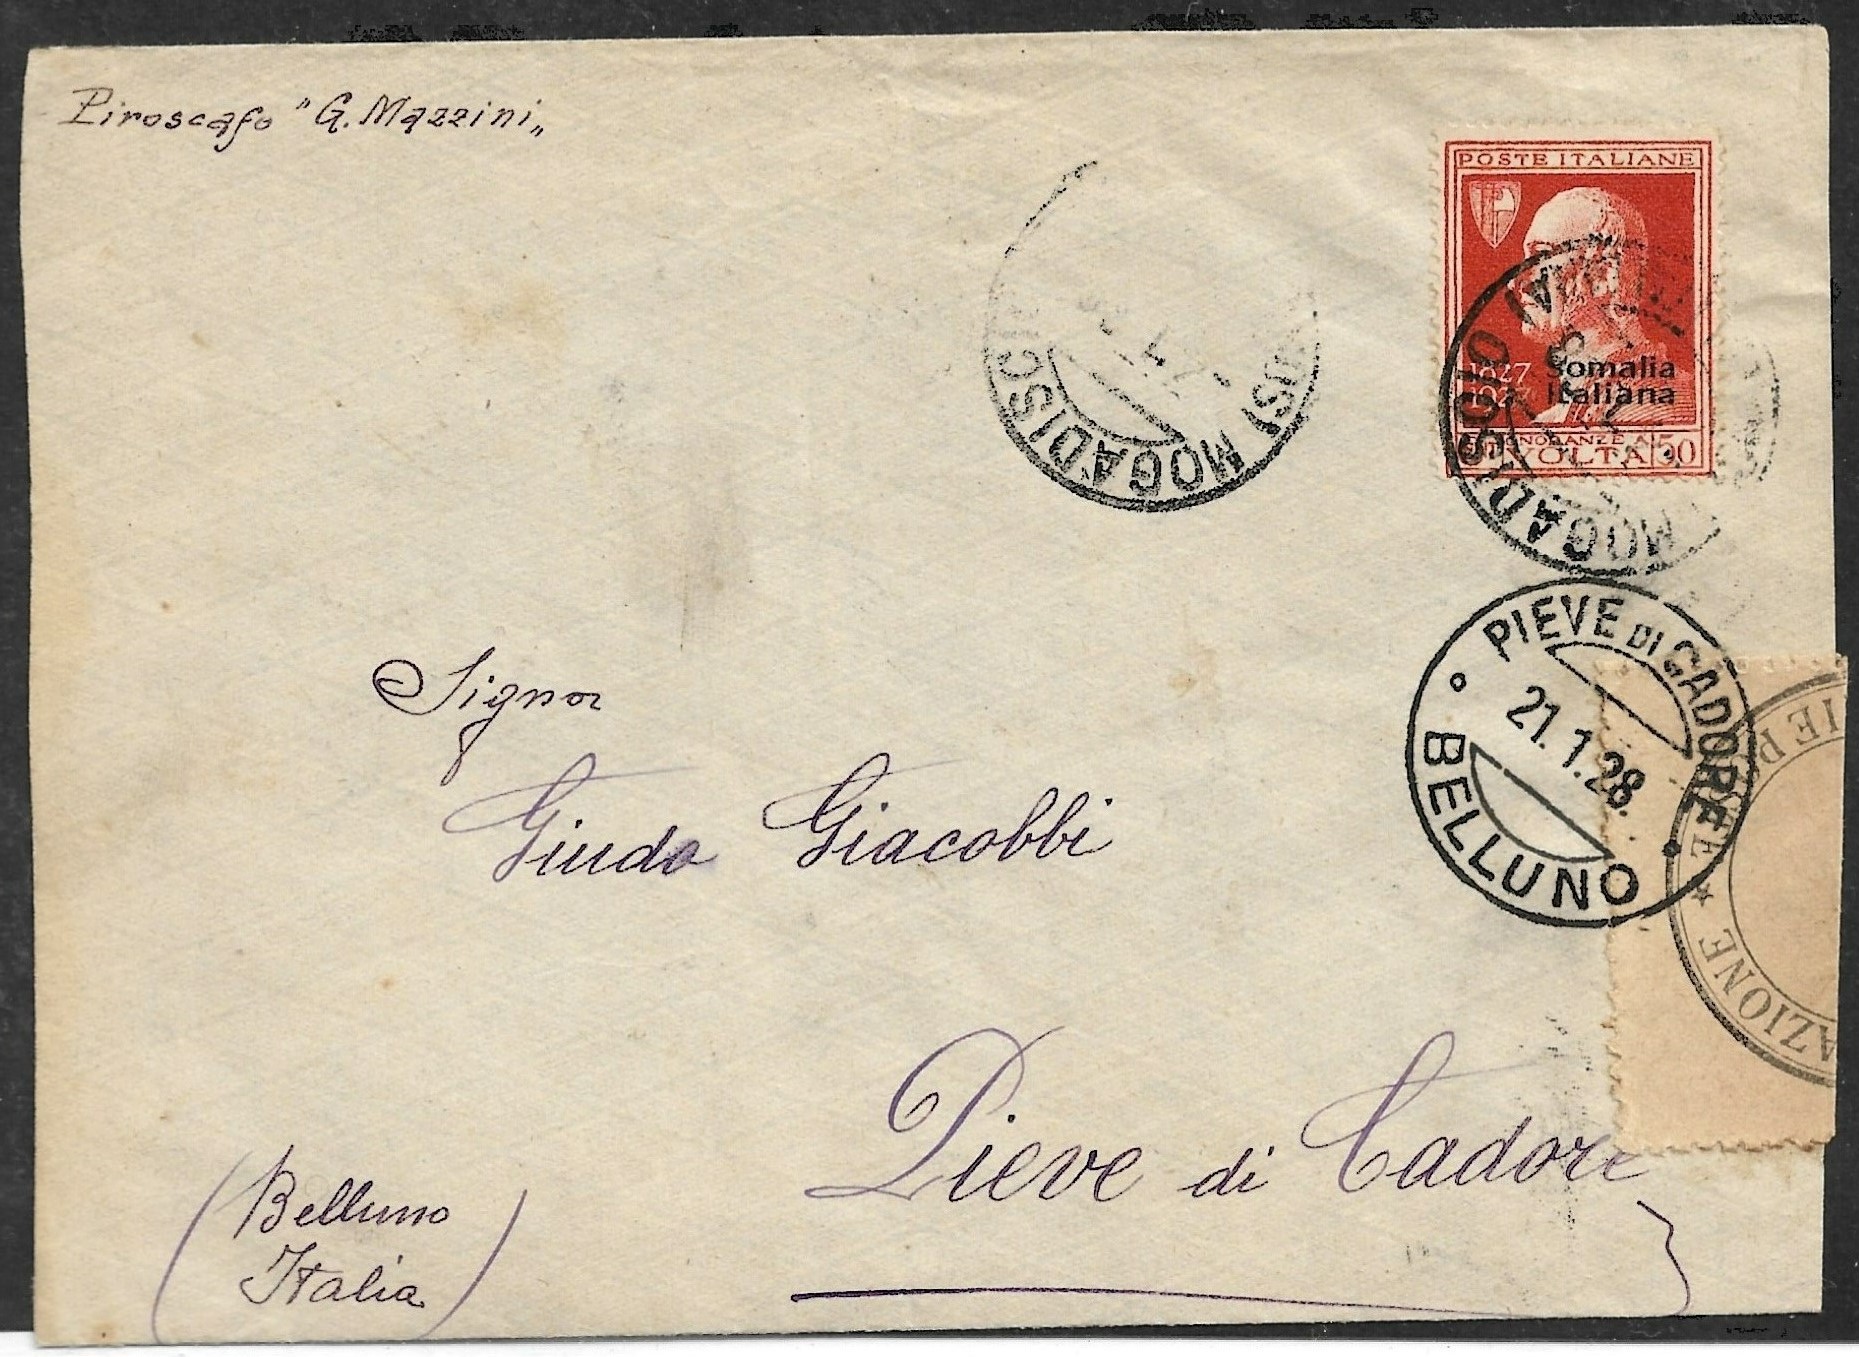 Piroscafo "G. Mazzini„
POSTE ITALIANE
1827
Somalia
Italiana
ONORANZE A
VOLTA 50
MOGADISCIO
MOGADISCIO
MOGADISCIO
PIEVE DI CADORE
21.1.28.
BELLUNO
Signor
Guido Giacobbi
Pieve di Cadore
(Belluno
Italia)
AZIONE